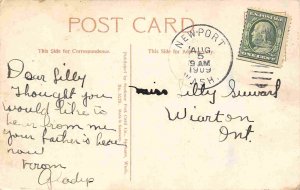 POST CARD
This Side is for Correspondence.
This Side is for Address.
NEWPORT
AUG
5
9 AM
1909
WASH.
Dear Lilly
Thought you
would like to
hear from me
your Father's hear
now
From
Gladys
Miss Lilly
Wiarton
Ont.